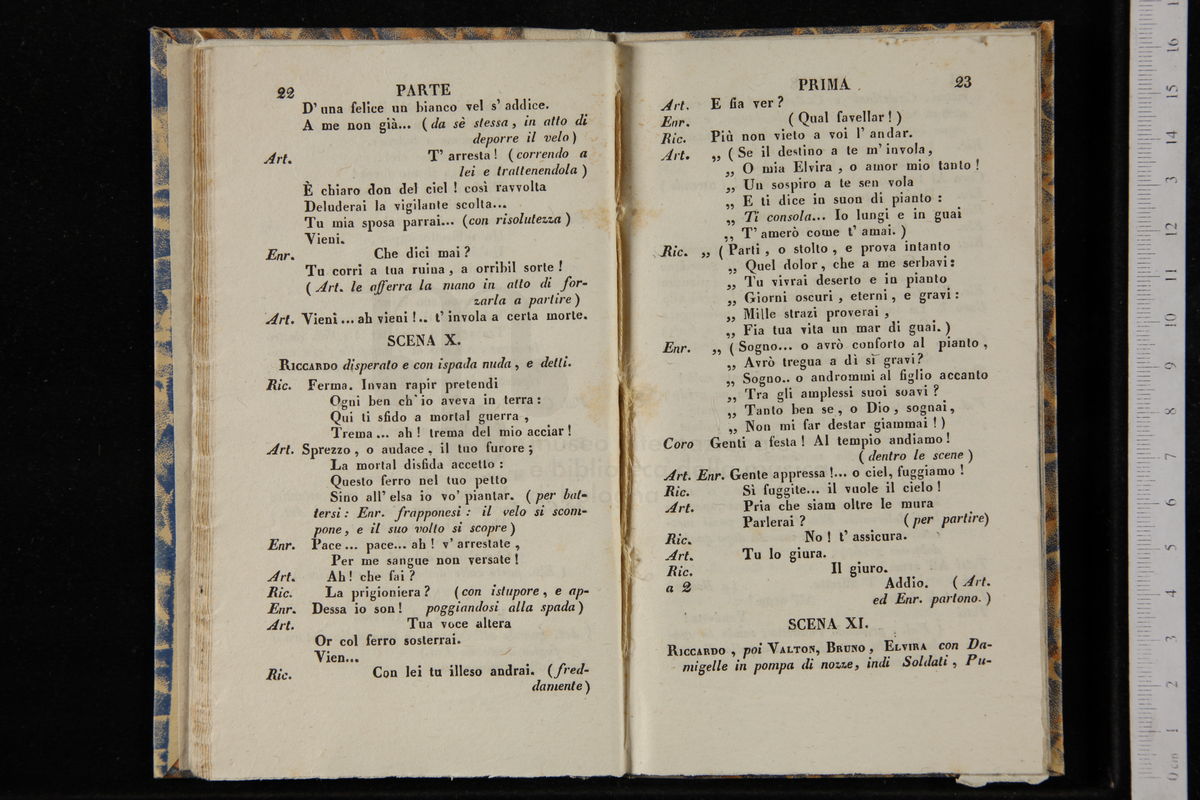 22 PARTE
D' una felice un bianco vel s' addice.
A me non già... (da sè stessa, in atto di
deporre il velo)
Art. T' arresta! (correndo a
lei e trattenendola)
È chiaro don del ciel! così ravvolta
Deluderai la vigilante scolta...
Tu mia sposa parrai... (con risolutezza)
Vieni.
Enr. Che dici mai?
Tu corri a tua ruina, a orribil sorte!
(Art. le afferra la mano in atto di for-
zarla a partire)
Art. Vieni... ah vieni!.. t' invola a certa morte.
SCENA X.
RICCARDO disperato e con ispada nuda, e detti.
Ric. Ferma. Invan rapir pretendi
Ogni ben ch' io aveva in terra:
Qui ti sfido a mortal guerra,
Trema... ah! trema del mio acciar!
Art. Sprezzo, o audace, il tuo furore;
La mortal disfida accetto:
Questo ferro nel tuo petto
Sino all' elsa io vo' piantar. (per bat-
tersi: Enr. frapponesi: il velo si scom-
pone, e il suo volto si scopre)
Enr. Pace... pace... ah! v' arrestate,
Per me sangue non versate!
Art. Ah! che fai?
Ric. La prigioniera? (con istupore, e ap-
Enr. Dessa io son! poggiandosi alla spada)
Art. Tua voce altera
Or col ferro sosterrai.
Vien...
Ric. Con lei tu illeso andrai. (fred-
damente)
PRIMA 23
Art. E fia ver?
Enr. (Qual favellar!)
Ric. Più non vieto a voi l' andar.
Art. „ (Se il destino a te m' invola,
„ O mia Elvira, o amor mio tanto!
„ Un sospiro a te sen vola
„ E ti dice in suon di pianto:
„ Ti consola... Io lungi e in guai
„ T' amerò come t' amai.)
Ric. „ (Parti, o stolto, e prova intanto
„ Quel dolor, che a me serbavi:
„ Tu vivrai deserto e in pianto
„ Giorni oscuri, eterni, e gravi:
„ Mille strazi proverai,
„ Fia tua vita un mar di guai.)
Enr. „ (Sogno... o avrò conforto al pianto,
„ Avrò tregua a dì sì gravi?
„ Sogno.. o andrommi al figlio accanto
„ Tra gli amplessi suoi soavi?
„ Tanto ben se, o Dio, sognai,
„ Non mi far destar giammai!)
Coro Genti a festa! Al tempio andiamo!
(dentro le scene)
Art. Enr. Gente appressa!... o ciel, fuggiamo!
Ric. Sì fuggite... il vuole il cielo!
Art. Pria che siam oltre le mura
Parlerai? (per partire)
Ric. No! t' assicura.
Art. Tu lo giura.
Ric. Il giuro.
a 2 Addio. (Art.
ed Enr. partono.)
SCENA XI.
RICCARDO, poi VALTON, BRUNO, ELVIRA con Da-
migelle in pompa di nozze, indi Soldati, Pu-
0 cm 1 2 3 4 5 6 7 8 9 10 11 12 13 14 15 16